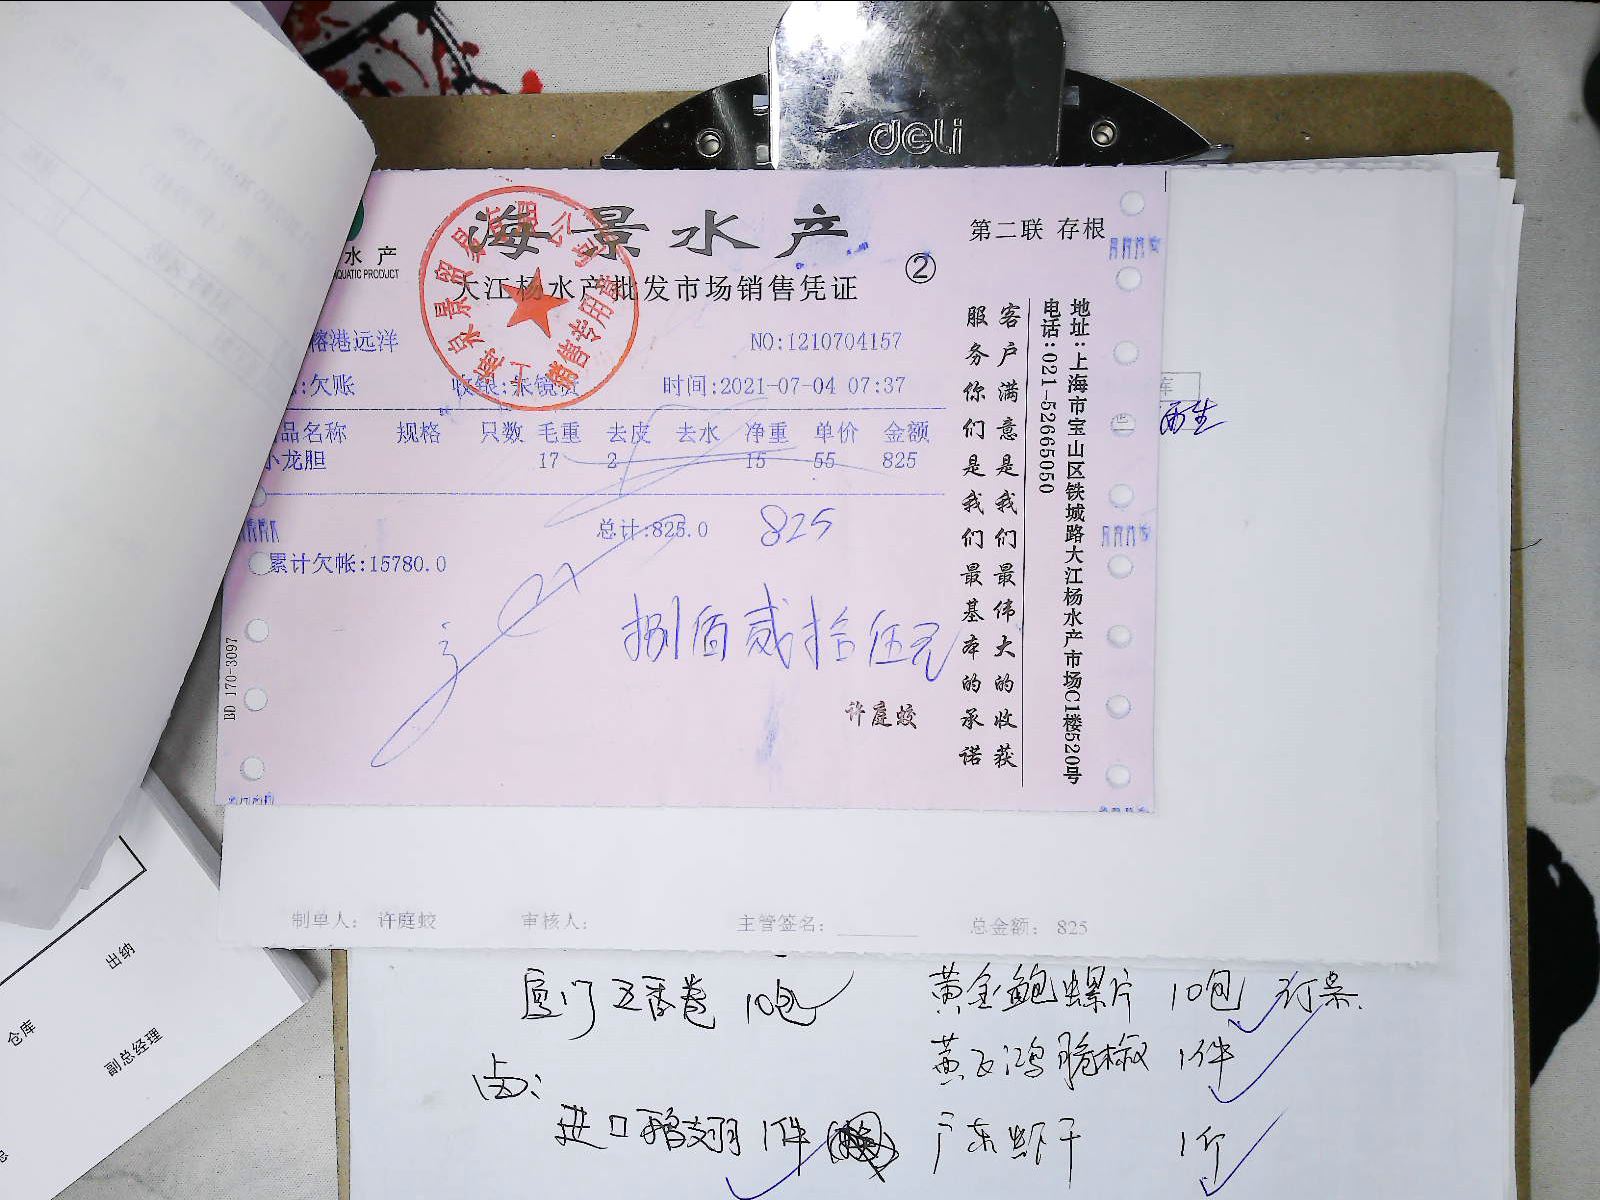 deli
海景水产
第二联 存根
水产
AQUATIC PRODUCT
大江杨水产批发市场销售凭证
②
榕港远洋
NO:1210704157
:欠账
收银:朱镜贵
时间:2021-07-04 07:37
品名称 规格 只数 毛重 去皮 去水 净重 单价 金额
小龙胆 17 2 15 55 825
总计:825.0 825
累计欠帐:15780.0
捌佰贰拾伍元
许庭蛟
BD 170-3097
客户满意是我们最伟大的收获
服务你们是我们最基本的承诺
地址:上海市宝山区铁城路大江杨水产市场C1楼520号
电话:021-52665050
库
再生
制单人: 许庭蛟 审核人: 主管签名: 总金额: 825
厦门五香卷 10包
黄金鲍螺片 10包
黄飞鸿脆椒 1件
卤:
进口鸭翅 1件
广东虾干 1斤
出纳
仓库
副总经理